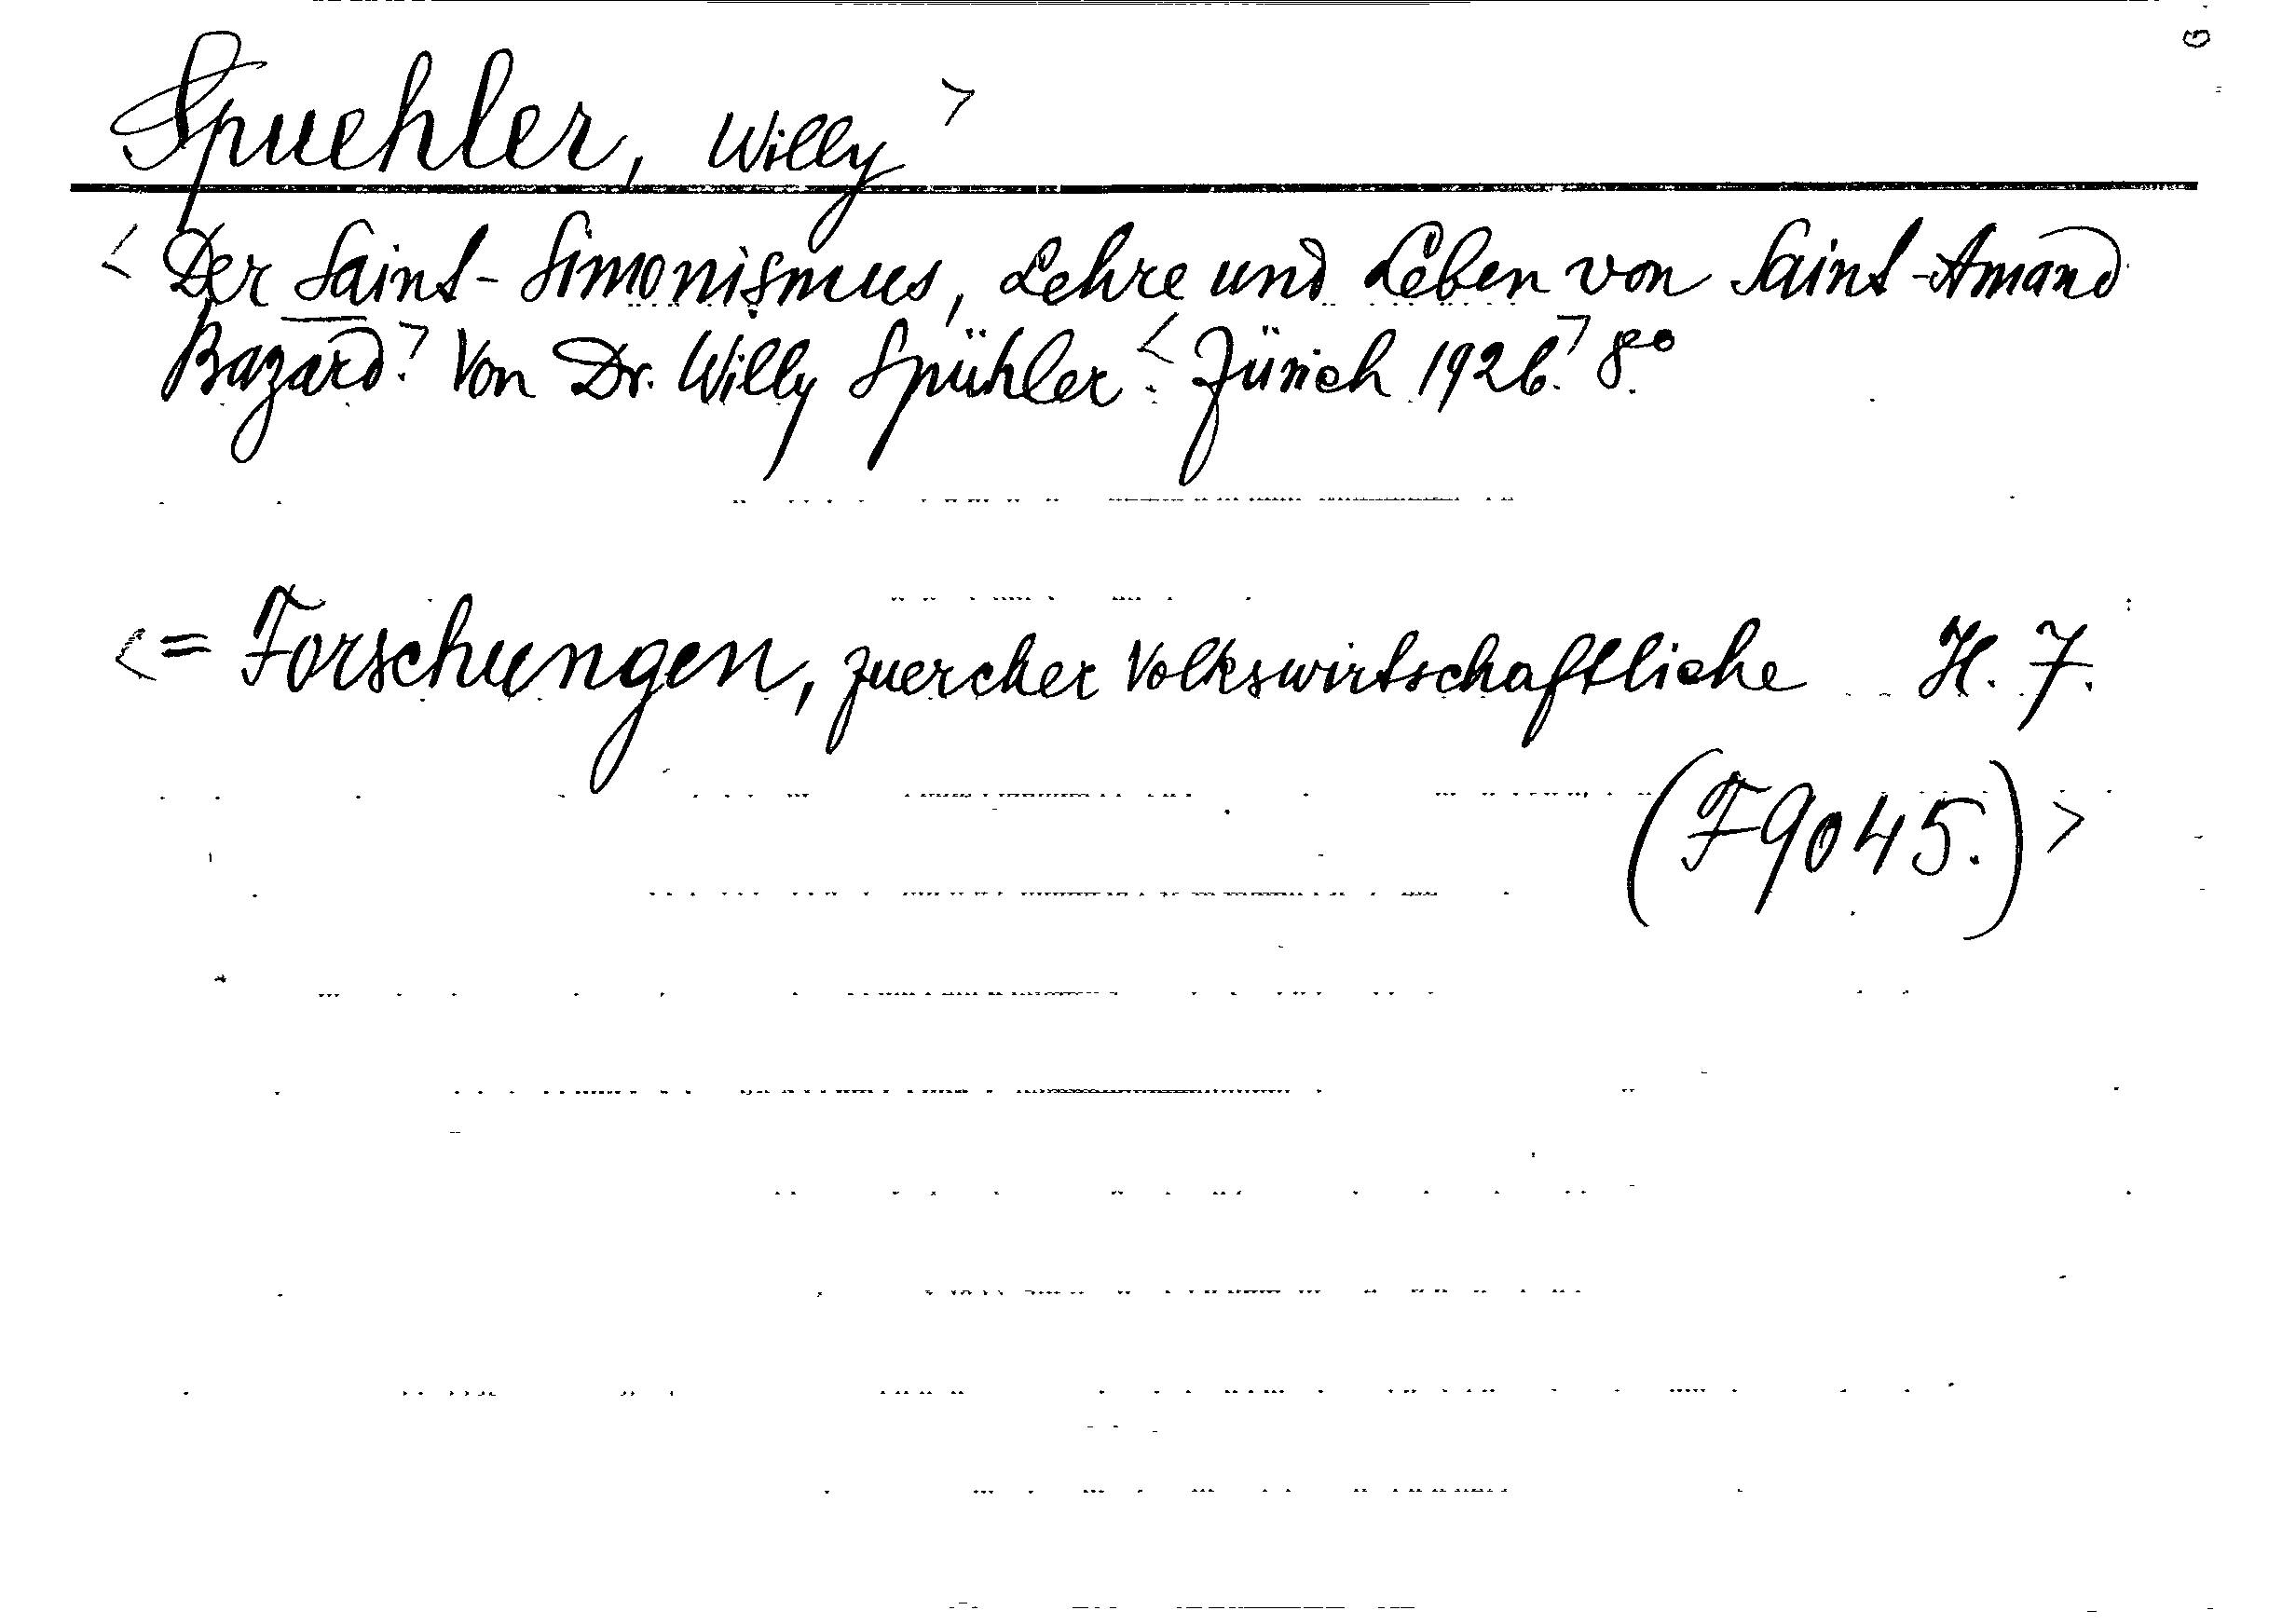 Spuehler, Willy >
< Der Saint-Simonismus, Lehre und Leben von Saint-Amand
Bazard.> Von Dr. Willy Spühler.< Zürich 1926.> 8.°
<= Forschungen, zuercher volkswirtschaftliche H. 7.
(F 9045.) >